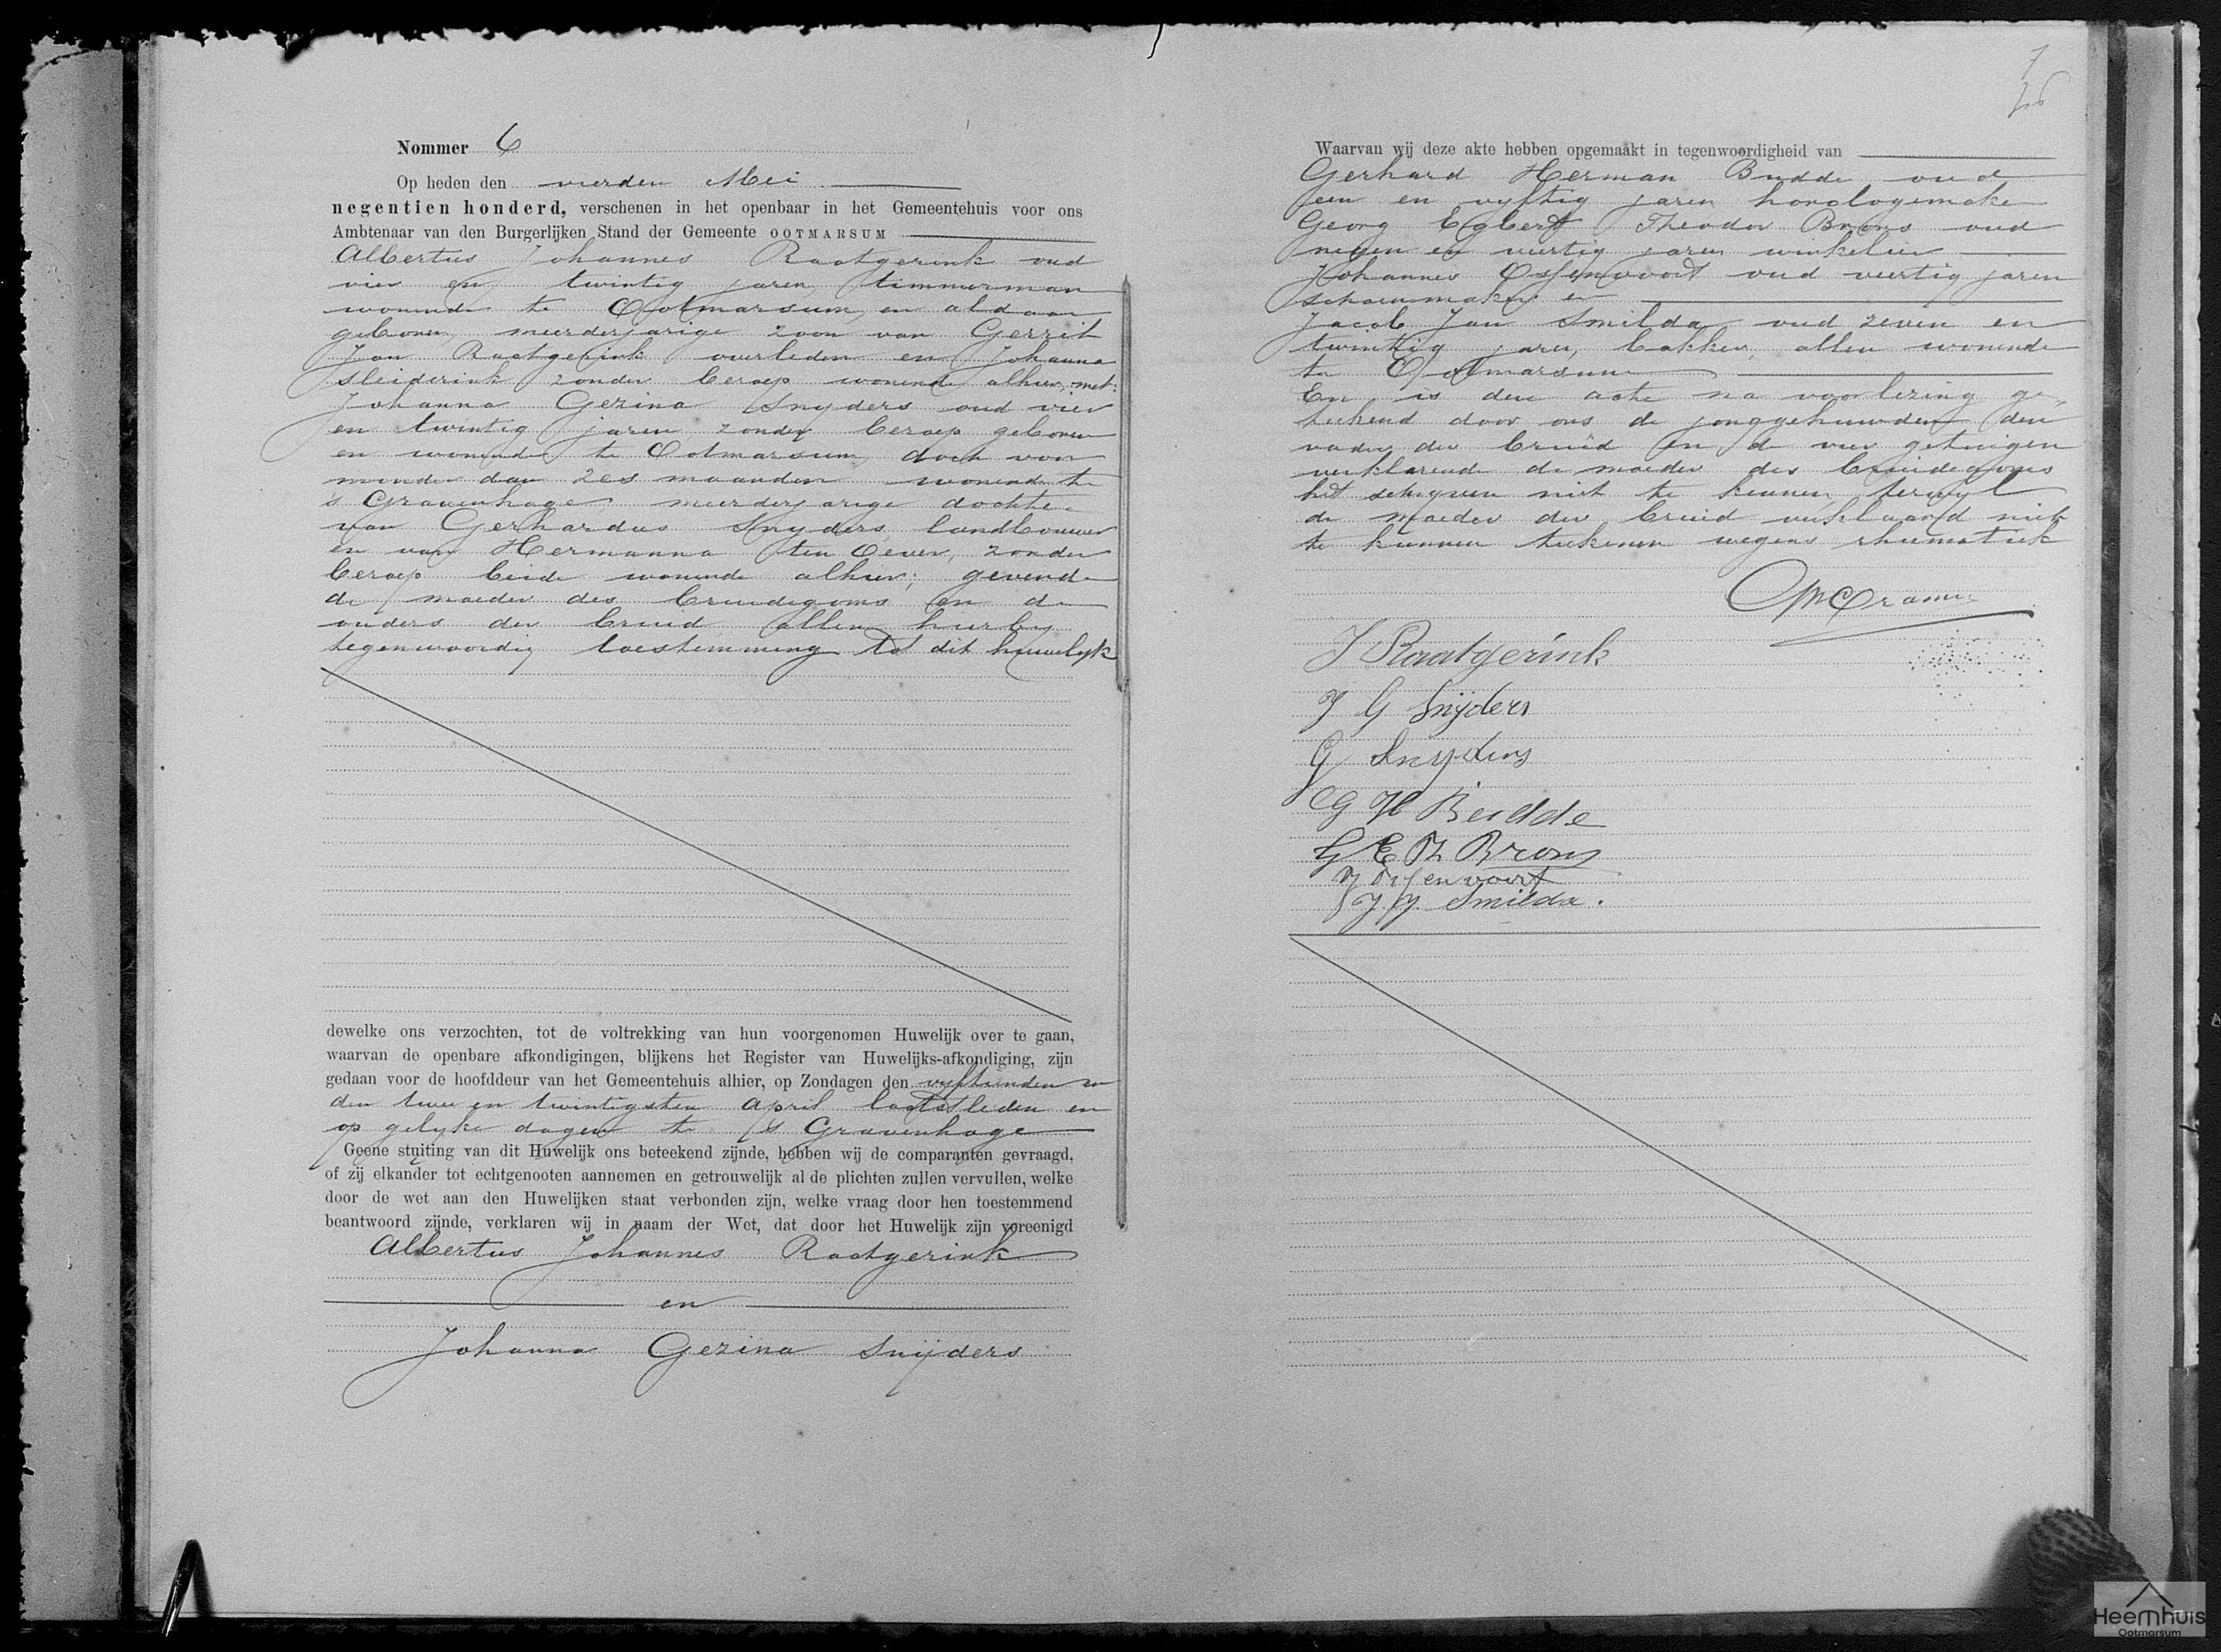 Nommer 6
Op heden den vierden Mei
negentien honderd, verschenen in het openbaar in het Gemeentehuis voor ons
Ambtenaar van den Burgerlijken Stand der Gemeente OOTMARSUM
Albertus Johannes Raatgerink oud
vier en twintig jaren, timmerman
wonende te Ootmarsum, en aldaar
geboren, meerderjarige zoon van Gerrit
Jan Raatgerink overleden en Johanna
Sleiderink zonder beroep wonende alhier, met:
Johanna Gezina Snyders oud vier
en twintig jaren zonder beroep geboren
en wonende te Ootmarsum, doch voor
minder dan zes maanden wonende te
's Gravenhage meerderjarige dochter
van Gerhardus Snyders, landbouwer
en van Hermanna ten Oever, zonder
beroep beide wonende alhier; gevende
de moeder des bruidegoms en de
ouders der bruid allen hierby
tegenwoordig toestemming tot dit huwelyk
dewelke ons verzochten, tot de voltrekking van hun voorgenomen Huwelijk over te gaan,
waarvan de openbare afkondigingen, blijkens het Register van Huwelijks-afkondiging, zijn
gedaan voor de hoofddeur van het Gemeentehuis alhier, op Zondagen den vyftienden en
den twee en twintigsten April laatstleden en
op gelyke dagen te 's Gravenhage
Geene stuiting van dit Huwelijk ons beteekend zijnde, hebben wij de comparanten gevraagd,
of zij elkander tot echtgenooten aannemen en getrouwelijk al de plichten zullen vervullen, welke
door de wet aan den Huwelijken staat verbonden zijn, welke vraag door hen toestemmend
beantwoord zijnde, verklaren wij in naam der Wet, dat door het Huwelijk zijn vereenigd
Albertus Johannes Raatgerink
en
Johanna Gezina Snijders
Waarvan wij deze akte hebben opgemaakt in tegenwoordigheid van
Gerhard Herman Budde oud
een en vyftig jaren horologemaker
Georg Egbert Theodor Brons oud
negen en veertig jaren winkelier
Johannes Ossenvoort oud veertig jaren
schoenmaker en
Jacob Jan Smilda oud zeven en
twintig jaren, bakker, allen wonende
te Ootmarsum
En is deze acte na voorlezing ge-
teekend door ons de jonggehuwden den
vader der bruid en de vier getuigen
verklarende de moeder des bruidegoms
het schryven niet te kennen terwyl
de moeder der bruid verklaard niet
te kunnen teekenen wegens rhumatiek
Cramer
J Raatgerink
J G Snÿders
G Snyders
G H Budde
G E Th Brons
J Ossenvoort
J. J. Smilda.
Heemhuis
Ootmarsum